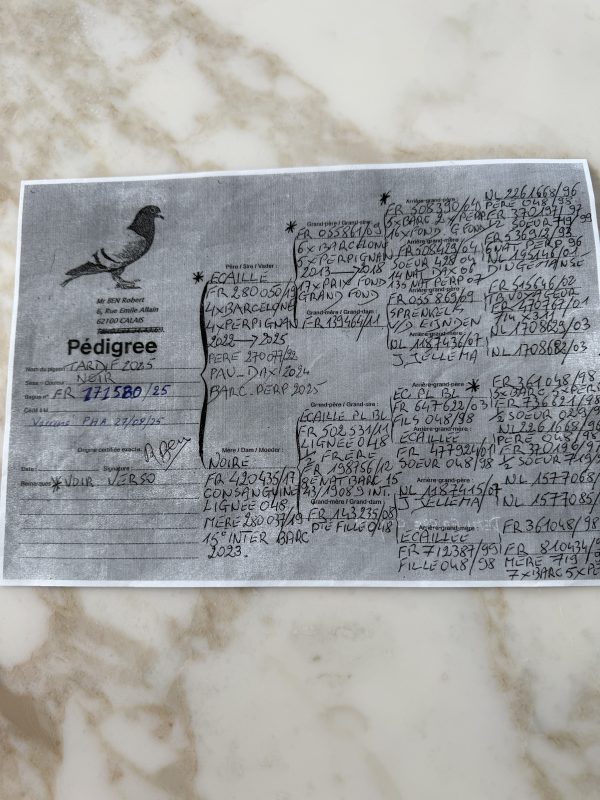 Mr BEN Robert
6, Rue Emile Allain
62100 CALAIS
Pédigree
Nom du pigeon TARDIF 2025
Sexe - Couleur NOIR
Bague n° FR 271580/25
Cédé à M.
Vaccins PHA 27/08/25
Origine certifiée exacte
Date Signature
Remarques * VOIR VERSO
Père / Sire / Vader :
* ECAILLE
FR 280050/19
4xBARCELONE
4xPERPIGNAN
2022 → 2025
PERE 270077/22
PAU_DAX/2024
BARC_PERP 2025
Mère / Dam / Moeder :
NOIRE
FR 420435/17
CONSANGUINE
LIGNÉE 048
MERE 280037/19
15e INTER BARC
2023.
Grand-père / Grand-sire :
* FR 055861/09
6xBARCELONE
5xPERPIGNAN
2013 → 2018
17x PRIX FOND
GRAND FOND
Grand-mère / Grand-dam :
FR 139464/11
Grand-père / Grand-sire :
ECAILLE PL BL
FR 502531/11
LIGNÉE 048
1/2 FRERE
FR 198756/12
8e NAT BARC 15
43/19089 INT.
Grand-mère / Grand-dam :
FR 143235/08
PTE FILLE 048
Arrière-grand-père
* FR 508390/04
5xBARC 2xPERP
16xFOND G FOND
Arrière-grand-mère
FR 508429/04
SOEUR 428 04
11 NAT DAX 06
13e NAT PERP 07
Arrière-grand-père
FR 055869/09
SPRENKELS
V/D EIJNDEN
Arrière-grand-mère
NL 1187436/07
J. JELLEMA
Arrière-grand-père
EC PL BL *
FR 647622/03
FILS 048/98
Arrière-grand-mère
ECAILLEE
FR 477924/01
SOEUR 048/98
Arrière-grand-père
NL 1187415/07
J JELLEMA
Arrière-grand-mère
ECAILLEE
FR 712387/99
FILLE 048/98
NL 2261668/96
PERE 048/98
FR 370197/97
1/2 SOEUR 719/99
6 NAT PERP 96
NL 195146/01
DINGEMANSE
FR 515646/02
NL 1708623/03
NL 1708682/03
FR 361048/98
NL 2261668/96
PERE 048/98
NL 1577068
NL 1577085
FR 361048/98
FR 810434/9
MERE 719
7xBARC 5xPE